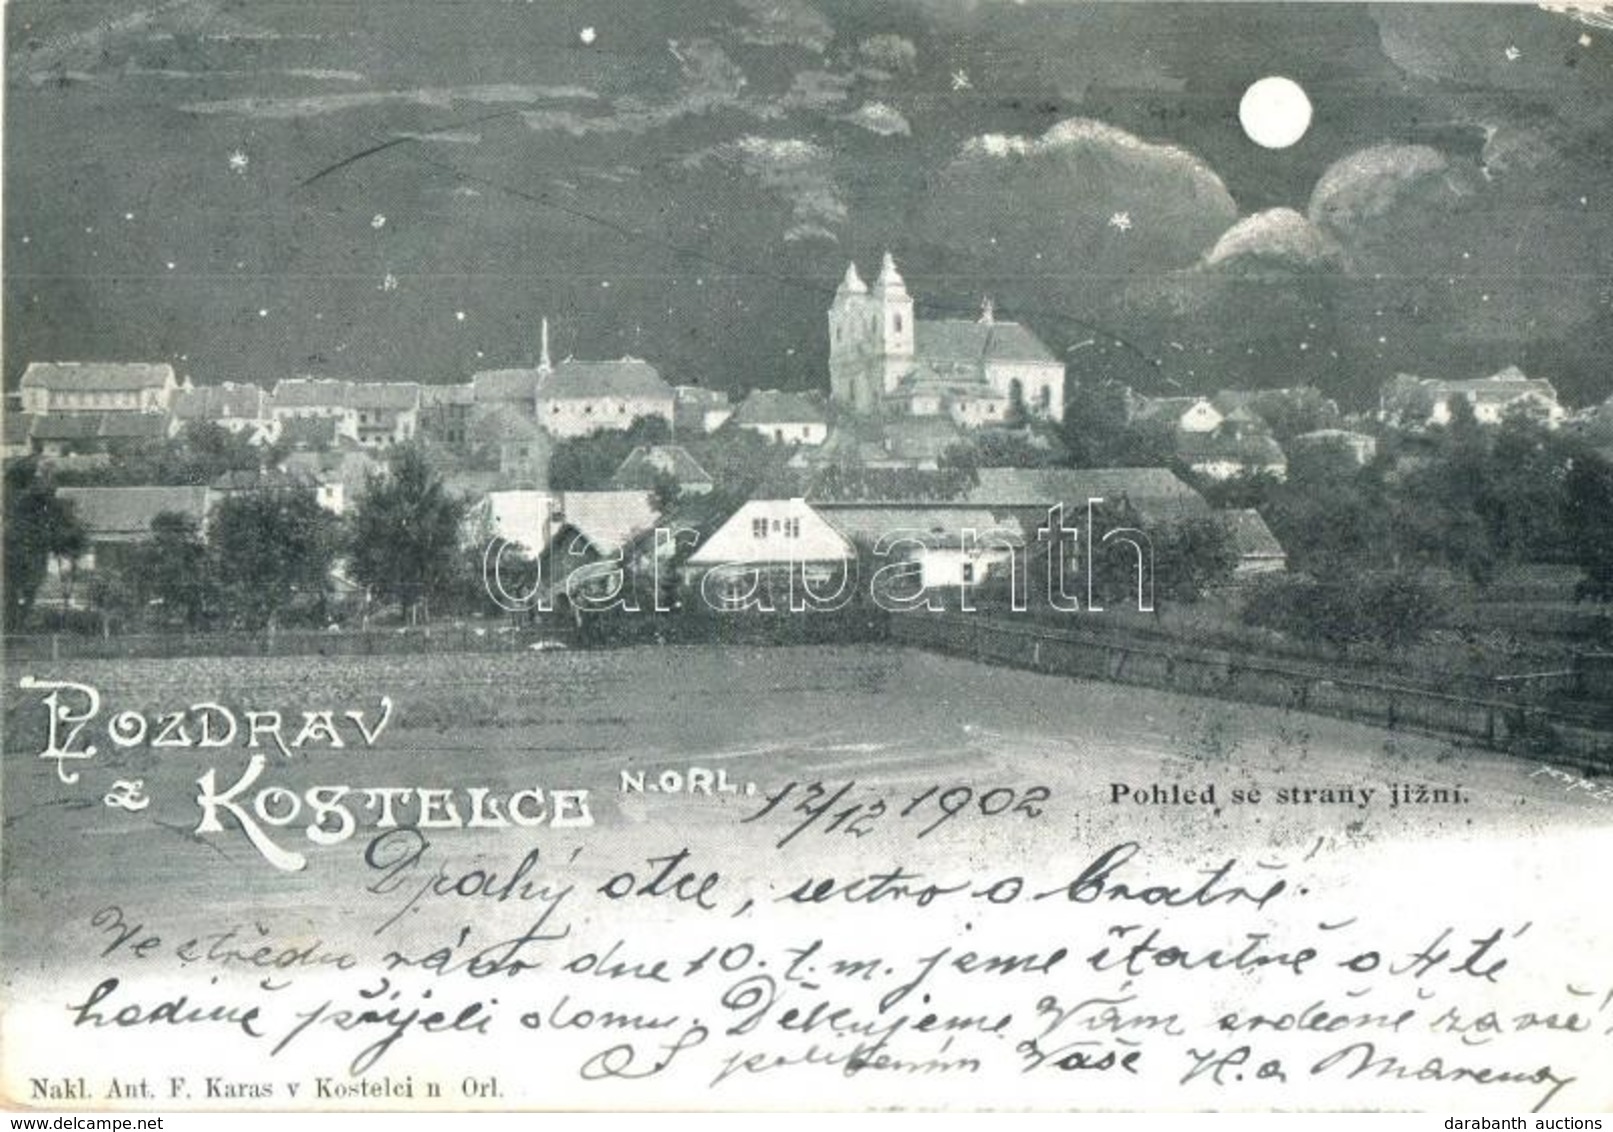 darabanth
Pozdrav
z Kostelce N. ORL.
12/12 1902
Pohled se strany jižní.
Drahý otče, sestro a bratře!
Ve středu ráno dne 10. t. m. jsme šťastně o 4 té
hodině přijeli domu. Děkujeme Vám srdečně za vše!
S políbením Vaše H. a
Nakl. Ant. F. Karas v Kostelci n Orl.
www.delcampe.net
darabanth auctions